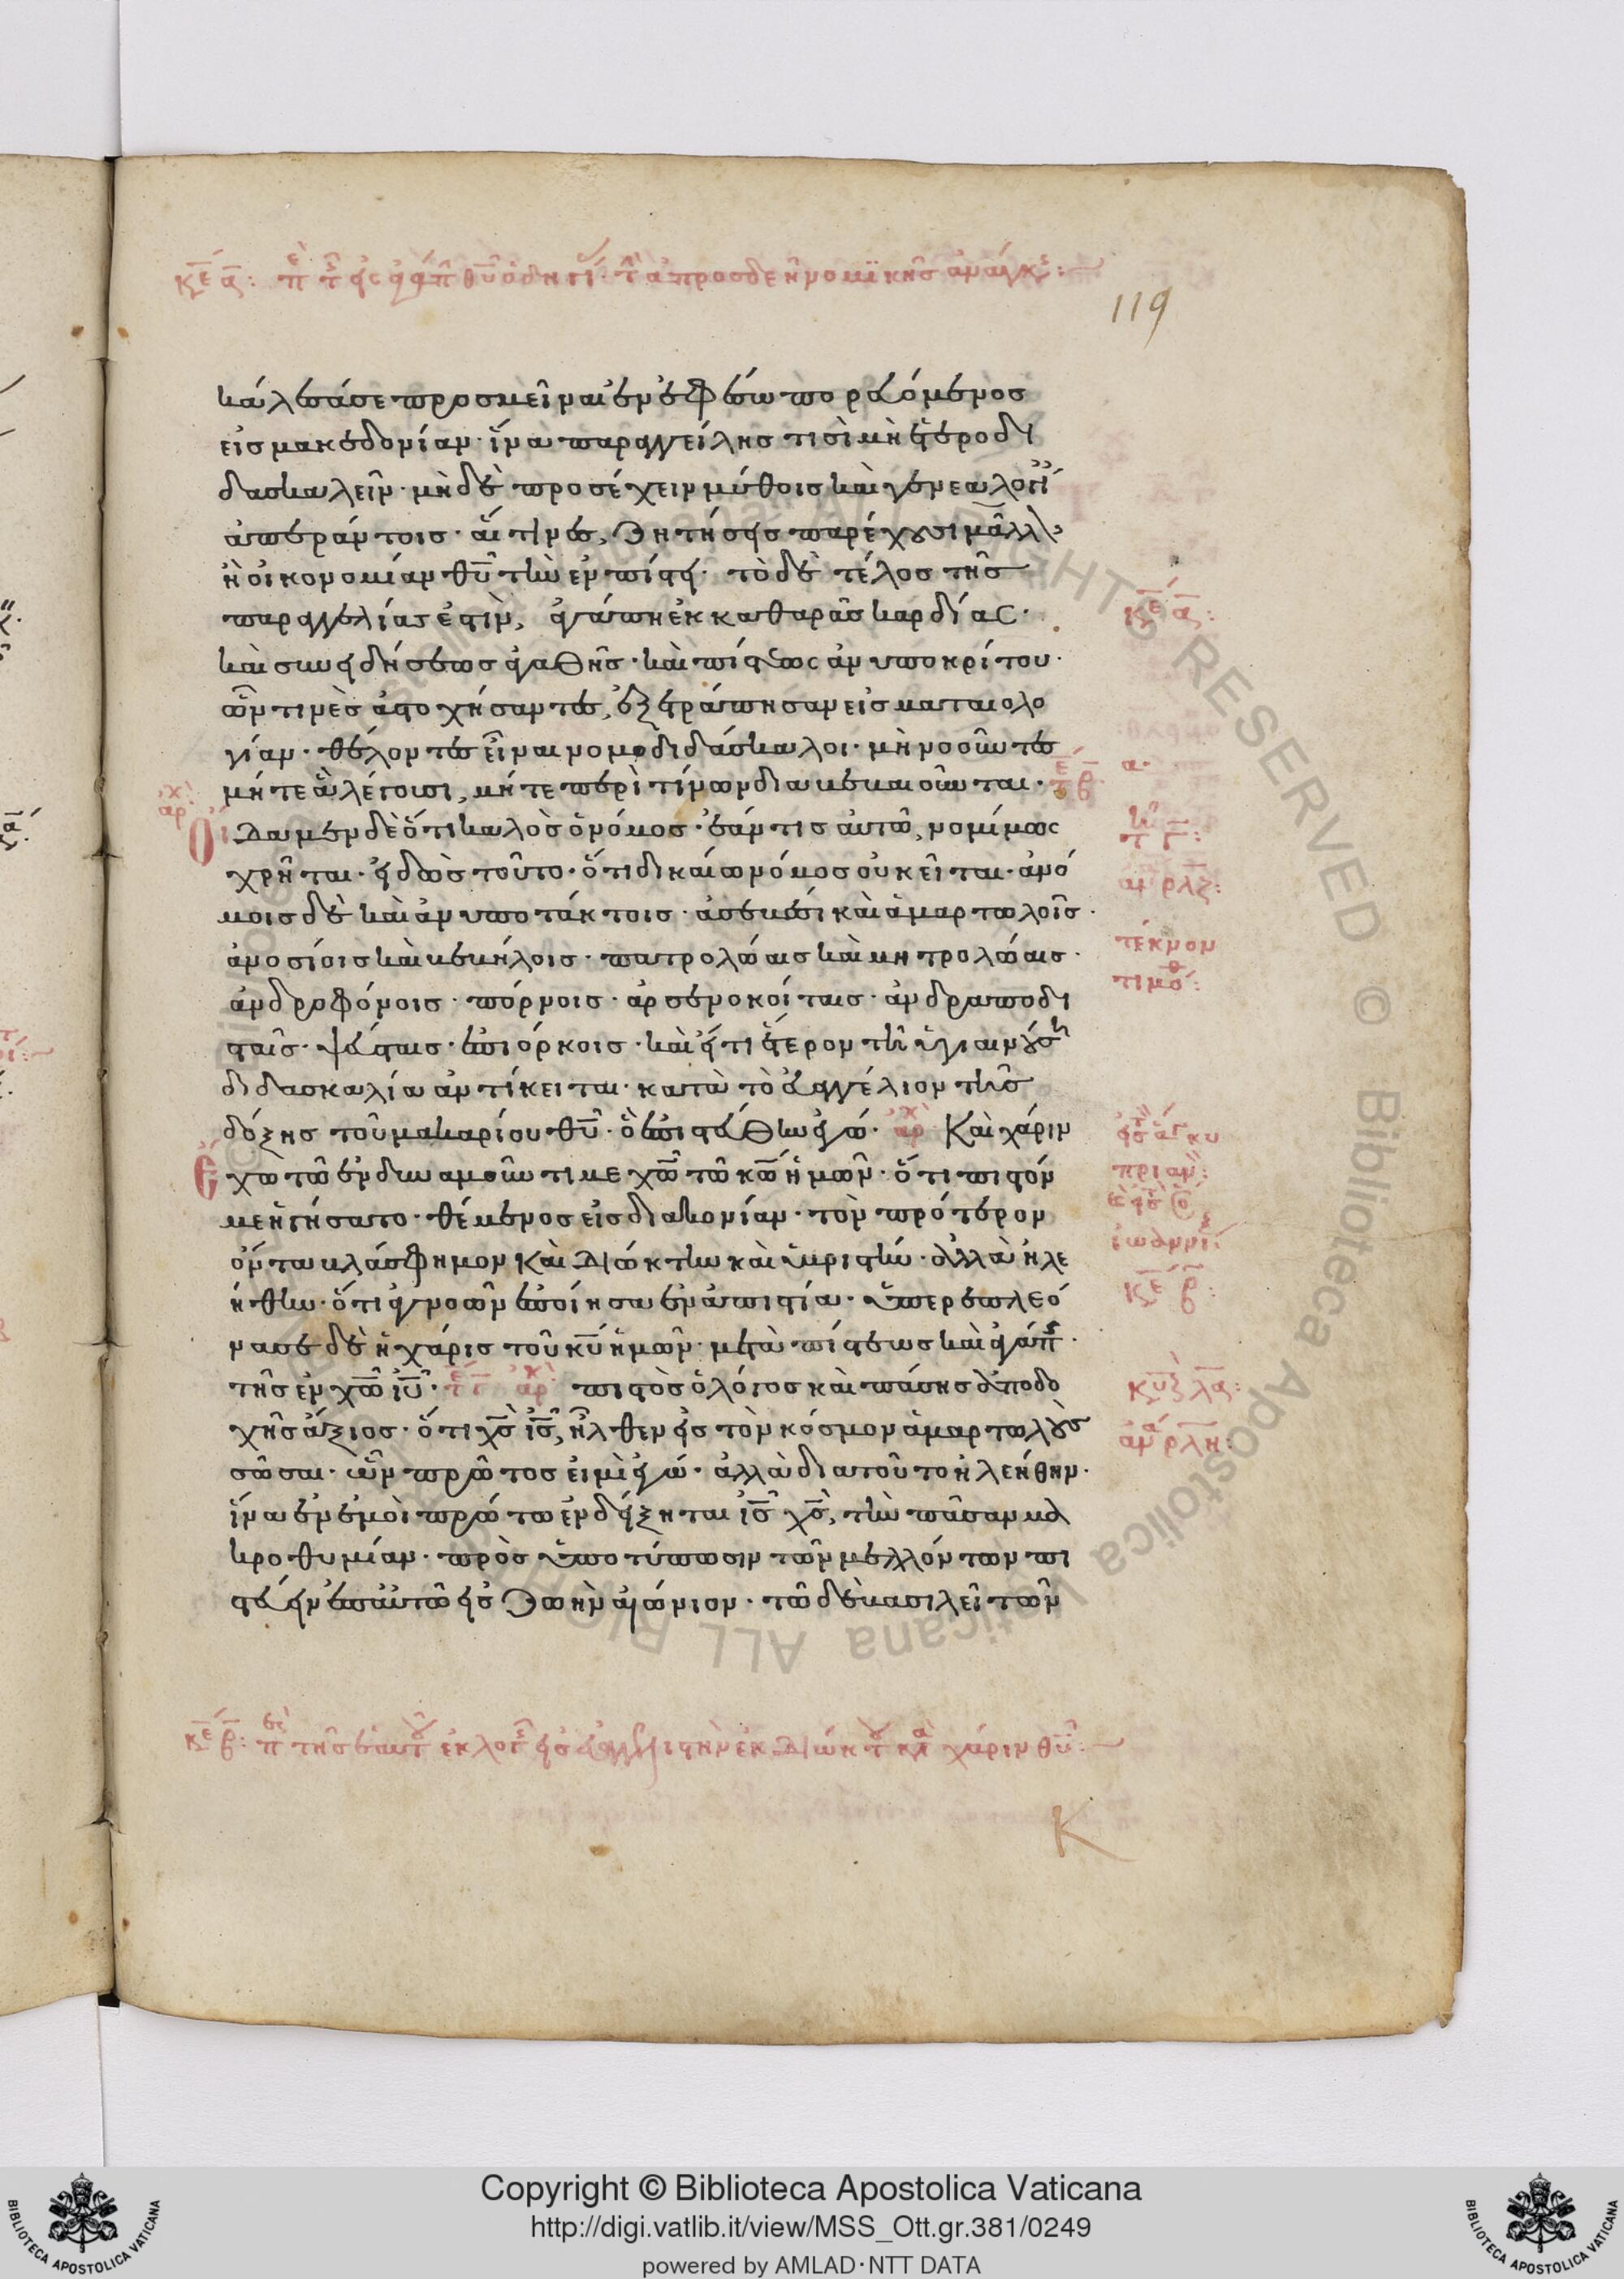 119
κάλεσά σε προσμεῖναι ἐν ἐφέσω πορευόμενος
εἰς μακεδονίαν· ἵνα παραγγείλης τισὶ μὴ ἑτεροδι
δασκαλεῖν· μὴ δὲ προσέχειν μύθοις καὶ γενεαλογί
ἀπεράντοις· αἵ τινες, ζητήσεις παρέχουσι μᾶλλ
ἢ οἰκονομίαν θῦ τὴν ἐν πίστει· τὸ δὲ τέλος τῆς
παραγγελίας ἐστὶν, ἀγάπη ἐκ καθαρᾶς καρδίας·
καὶ συνειδήσεως ἀγαθῆς· καὶ πίστεως ἀνυποκρίτου·
ὧν τινὲς ἀστοχήσαντες, ἐξετράπησαν εἰς ματαιολο
γίαν· θέλοντες εἶναι νομοδιδάσκαλοι· μὴ νοοῦντες
μήτε ἃ λέγουσι, μήτε περὶ τίνων διαβεβαιοῦνται·
Οἴδαμεν δὲ ὅτι καλὸς ὁ νόμος· ἐάν τις αὐτῶ, νομίμως
χρῆται· εἰδὼς τοῦτο· ὅτι δικαίω νόμος οὐ κεῖται· ἀνό
μοις δὲ καὶ ἀνυποτάκτοις· ἀσεβέσι καὶ ἁμαρτωλοῖς·
ἀνοσίοις καὶ βεβήλοις· πατρολώαις καὶ μητρολώαις·
ἀνδροφόνοις· πόρνοις· ἀρσενοκοίταις· ἀνδραποδι
σταῖς· ψεύσταις· ἐπιόρκοις· καὶ εἴ τι ἕτερον τῆ ὑγιαινούσῃ
διδασκαλία ἀντίκειται· κατὰ τὸ εὐαγγέλιον τῆς
δόξης τοῦ μακαρίου θῦ· ὃ ἐπιστεύθην ἐγώ· ἀρχ Καὶ χάριν
ἔχω τῶ ἐνδυναμοῦντί με χῶ τῶ κῶ ἡμῶν· ὅτι πιστόν
με ἡγήσατο· θέμενος εἰς διακονίαν· τὸν πρότερον
ὄντα βλάσφημον καὶ διώκτην καὶ ὑβριστήν· ἀλλὰ ἠλε
ήθην· ὅτι ἀγνοῶν ἐποίησα ἐν ἀπιστία· ὑπερεπλεό
νασε δὲ ἡ χάρις τοῦ κῦ ἡμῶν· μετὰ πίστεως καὶ ἀγάπ
τῆς ἐν χῶ ἰῦ· ἀρχ πιστὸς ὁ λόγος καὶ πάσης ἀποδο
χῆς ἄξιος· ὅτι χς ἰς, ἦλθεν εἰς τὸν κόσμον ἁμαρτωλοὺς
σῶσαι· ὧν πρῶτος εἰμὶ ἐγώ· ἀλλὰ διατοῦτο ἠλεήθην·
ἵνα ἐν ἐμοὶ πρώτω ἐνδείξηται ἰς χς, τὴν πᾶσαν μα
κροθυμίαν· πρὸς ὑποτύπωσιν τῶν μελλόντων πι
στεύειν ἐπ αὐτῶ εἰς ζωὴν αἰώνιον· τῶ δὲ βασιλεῖ τῶν
κε α:
τέκνον
τιμό:
κε β:
κε β: π τῆς ἑαυτ ἐκλογ εἰς χάριν θῦ:
Copyright © Biblioteca Apostolica Vaticana
http://digi.vatlib.it/view/MSS_Ott.gr.381/0249
powered by AMLAD·NTT DATA
BIBLIOTECA APOSTOLICA VATICANA
BIBLIOTECA APOSTOLICA VATICANA